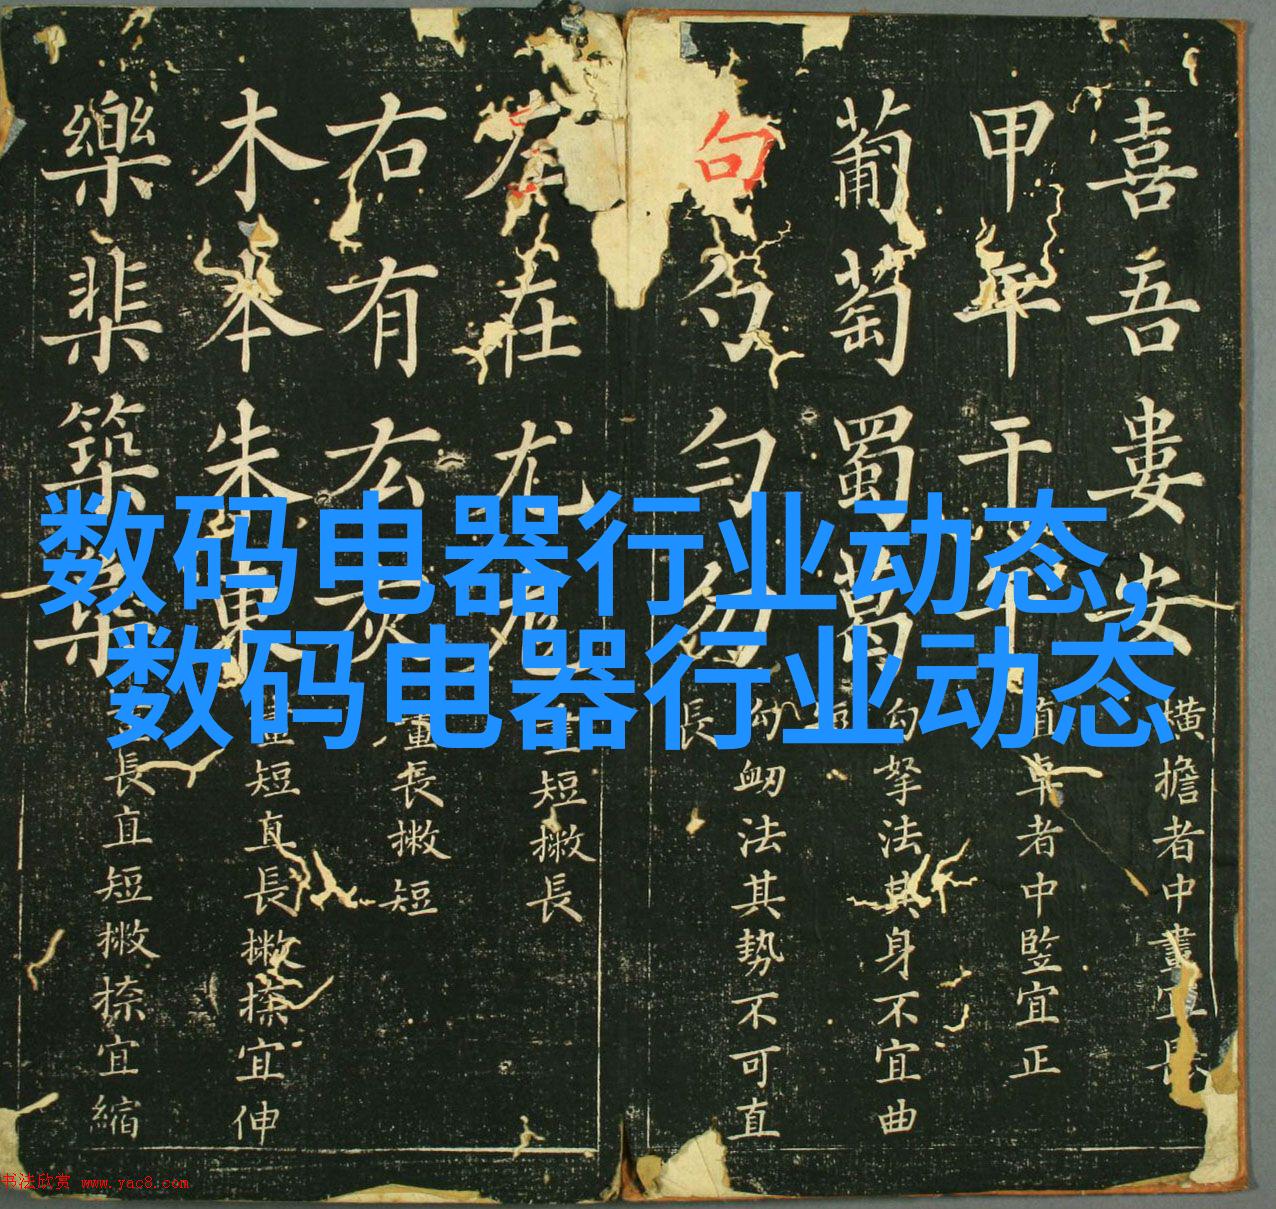 数码电器行业动态,
数码电器行业动态
喜吾婁安
横擔者中畫宜
甲平干午
直卓者中竪宜正
葡萄蜀葛
勾拏法其身不宜曲
句勺匀勿
法其势不可直
左在尤
短撇長
右有灰
畫長撇短
木本朱東
畫短直長撇捺宜伸
樂棐築
長直短撇捺宜縮
书法欣赏 www.yac8.com